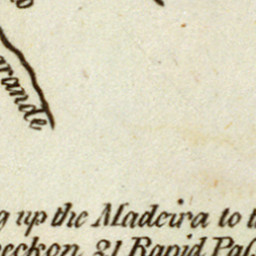 rande
g up the Madeira to t
eckon 21 Rapid Pas